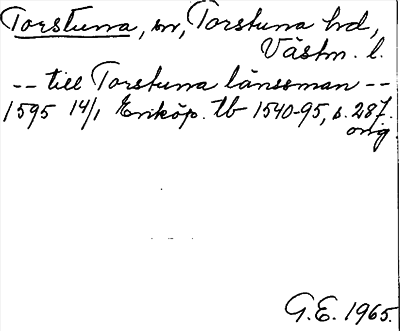 Torstuna, sn, Torstuna hd,
Västm. l.
-- till Torstuna länssman --
1595 14/1 Enköp. tb 1540-95, s. 287.
orig
G.E. 1965.